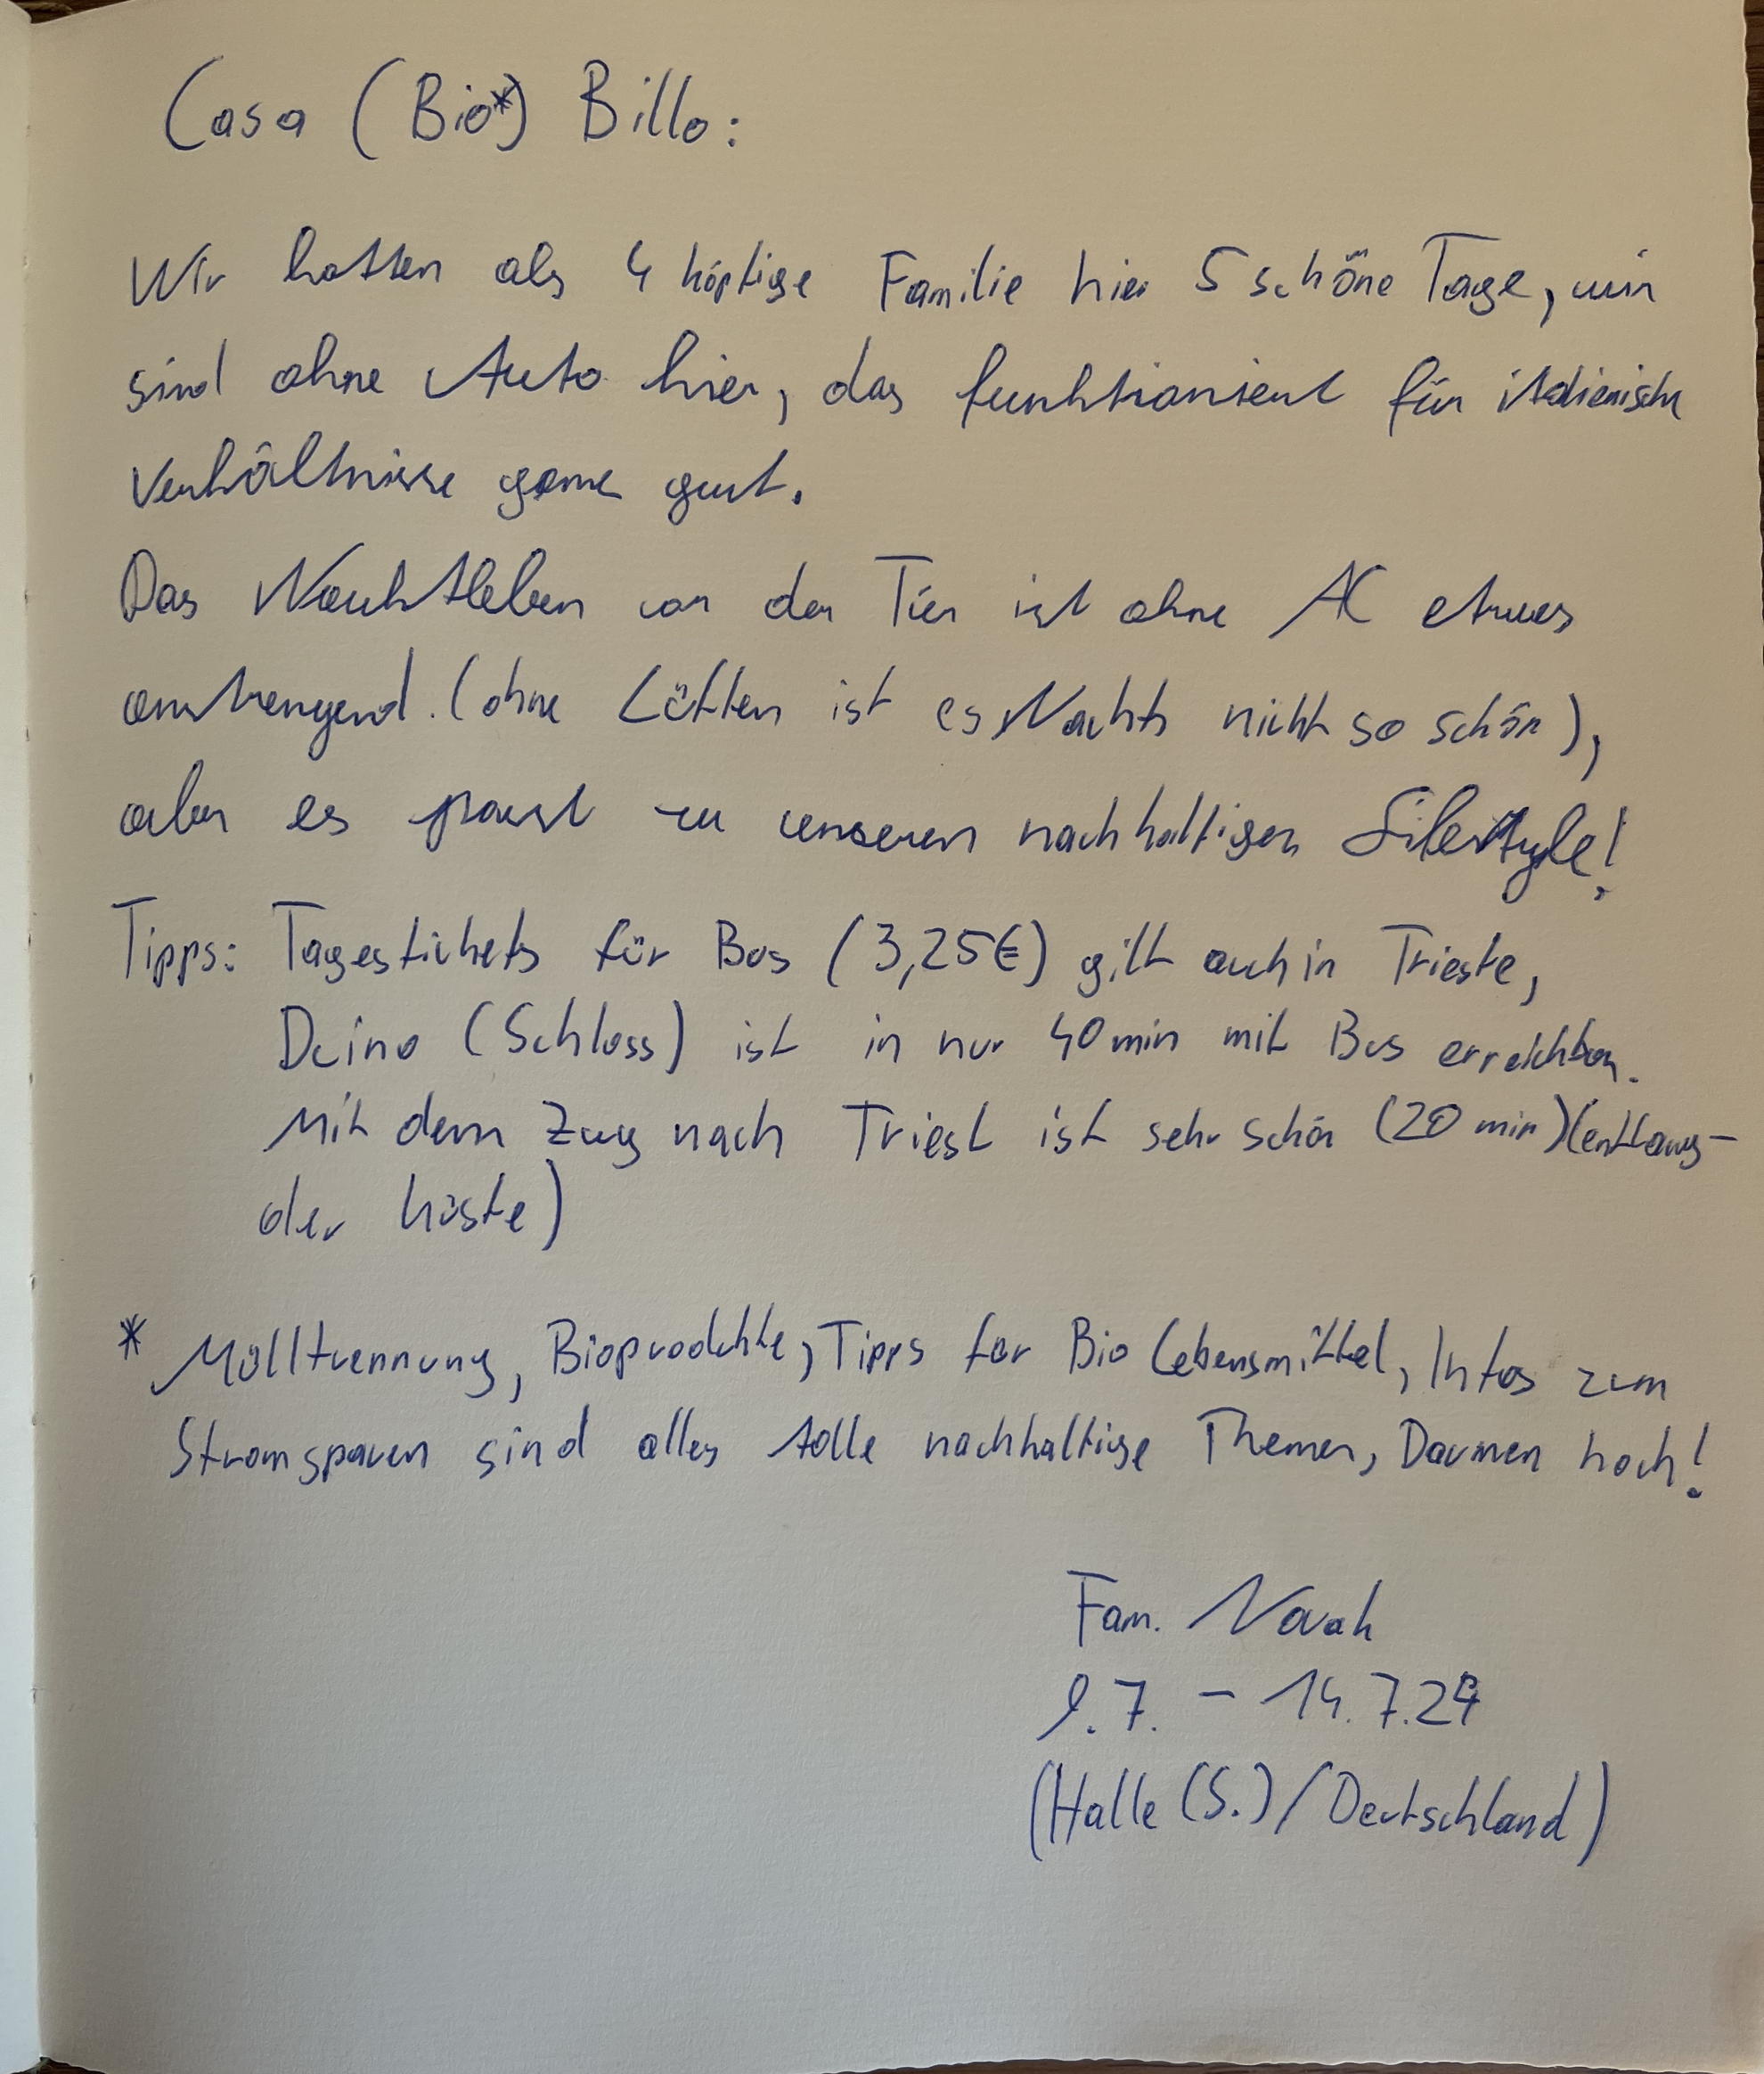 Casa (Bio*) Billo:
Wir hatten als 4 köpfige Familie hier 5 schöne Tage, wir
sind ohne Auto hier, das funktioniert für italienische
Verhältnisse ganz gut.
Das Nachtleben vor der Tür ist ohne AC etwas
anstrengend. (ohne Lüften ist es Nachts nicht so schön),
aber es passt zu unseren nachhaltigen Lifestyle!
Tipps: Tagestickets für Bus (3,25€) gilt auch in Trieste,
Duino (Schloss) ist in nur 40 min mit Bus erreichbar.
Mit dem Zug nach Triest ist sehr schön (20 min) (entlang-
der Küste)
* Mülltrennung, Bioprodukte, Tipps für Bio Lebensmittel, Infos zum
Stromsparen sind alles tolle nachhaltige Themen, Daumen hoch!
Fam. Novak
9.7. – 14.7.24
(Halle (S.) / Deutschland)